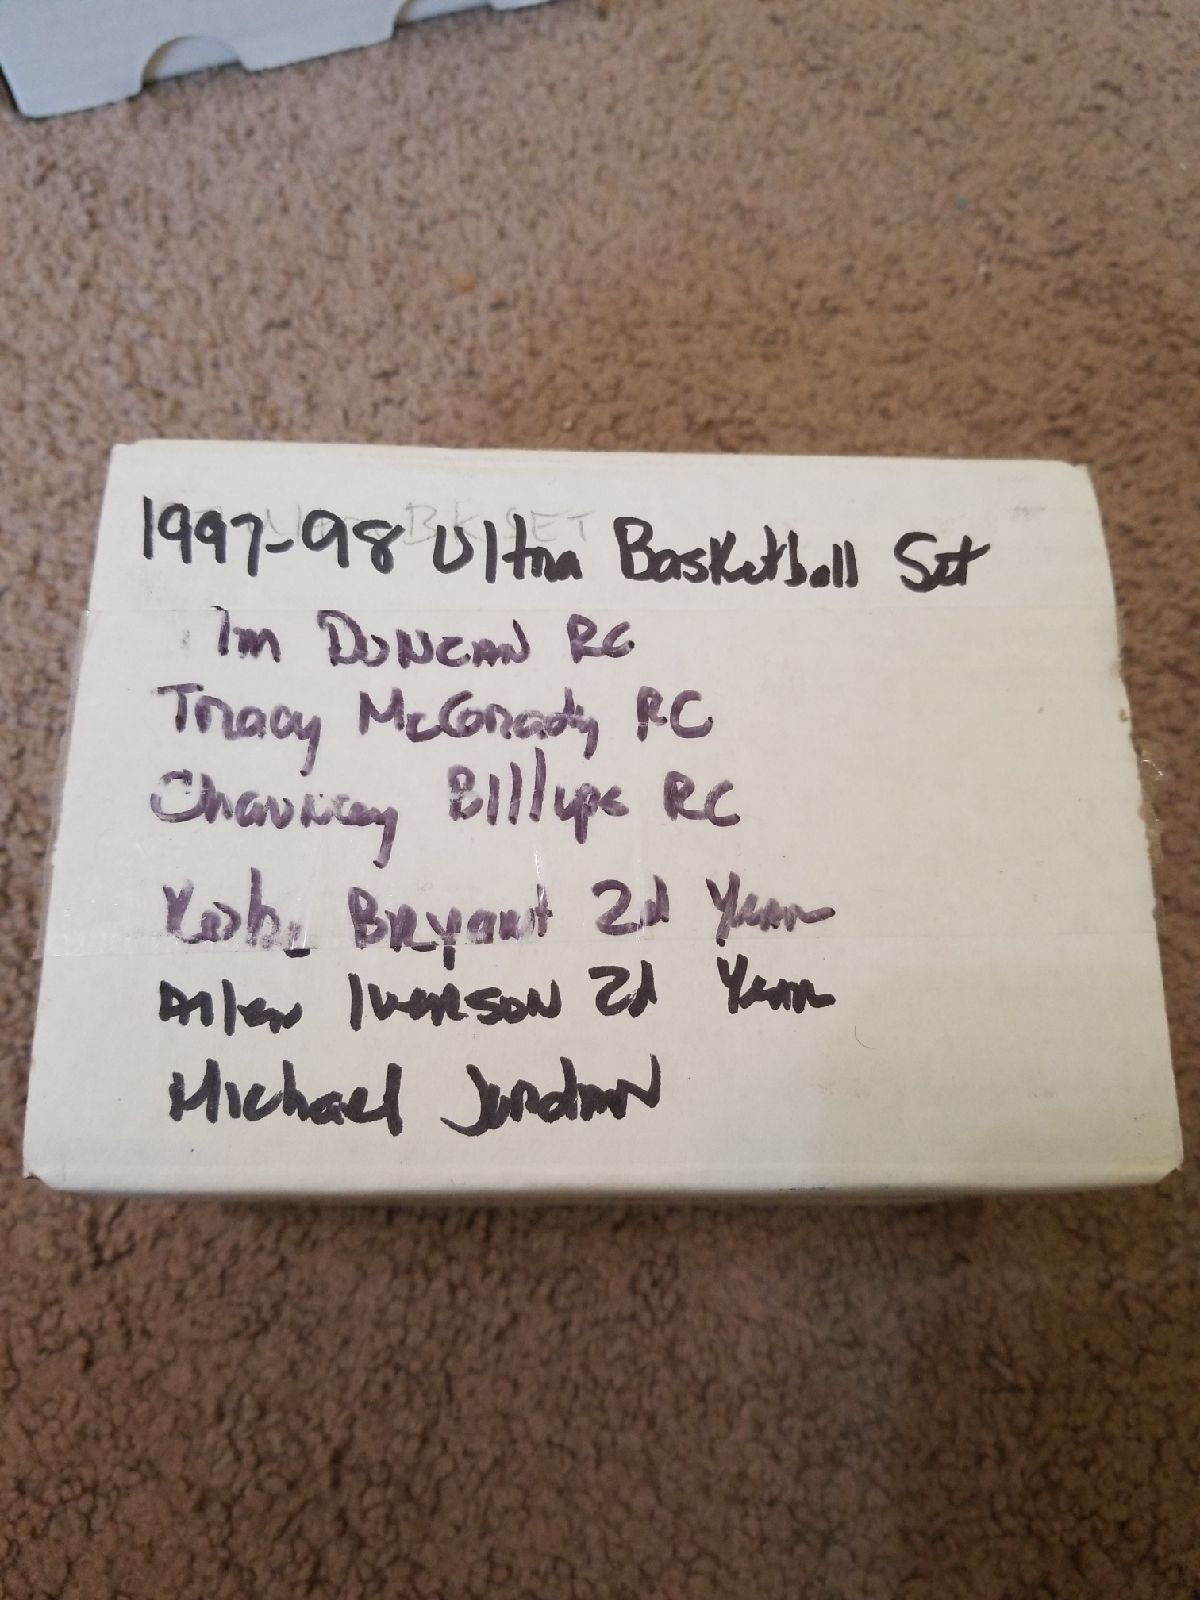 1997-98 Ultra Basketball Set
Tim DUNCAN RC
Tracy McGrady RC
Chauncey Billups RC
Kobe Bryant 2d Year
Allen Iverson 2d Year
Michael Jordan
BK SET